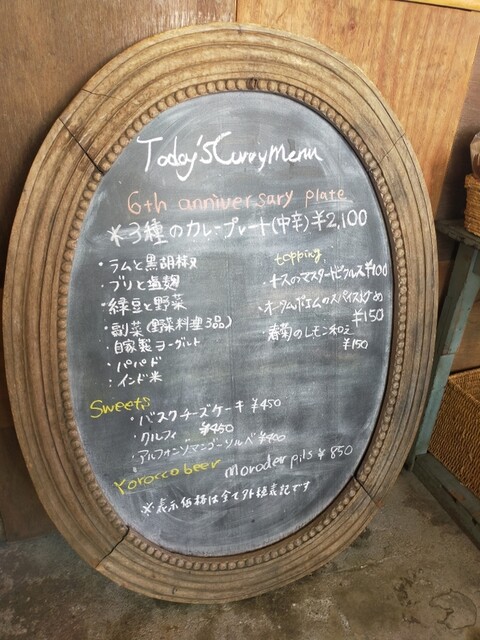 Today's Curry Menu
6th anniversary plate
*3種のカレープレート(中辛)¥2,100
・ラムと黒胡椒
・ブリと塩麹
・緑豆と野菜
・副菜(野菜料理3品)
・自家製ヨーグルト
・パパド
・インド米
topping
のマスタードピクルス¥100
・オータムポエムのスパイス炒め
¥150
・春菊のレモン和え
¥150
Sweets
・バスクチーズケーキ ¥450
・クルフィ ¥450
・アルフォンゾマンゴーソルベ ¥400
Yorocco beer moroder pils ¥850
※表示価格は全て外税表記です